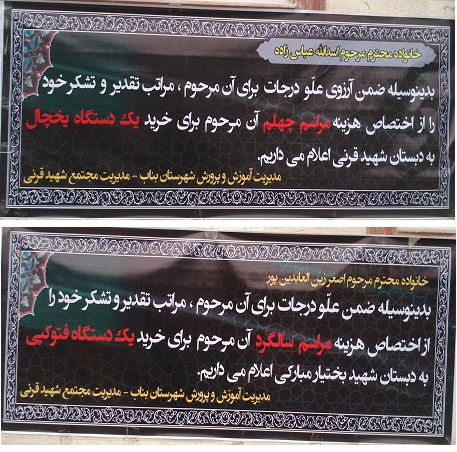 خانواده محترم مرحوم اسدالله عباس زاده
بدینوسیله ضمن آرزوی علّو درجات برای آن مرحوم ، مراتب تقدیر و تشکر خود
را از اختصاص هزینه مراسم چهلم آن مرحوم برای خرید یک دستگاه یخچال
به دبستان شهید قرنی اعلام می داریم.
مدیریت آموزش و پرورش شهرستان بناب - مدیریت مجتمع شهید قرنی
خانواده محترم مرحوم اصغر زین العابدین پور
بدینوسیله ضمن علّو درجات برای آن مرحوم ، مراتب تقدیر و تشکر خود را
از اختصاص هزینه مراسم سالگرد آن مرحوم برای خرید یک دستگاه فتوکپی
به دبستان شهید بختیار مبارکی اعلام می داریم.
مدیریت آموزش و پرورش شهرستان بناب - مدیریت مجتمع شهید قرنی